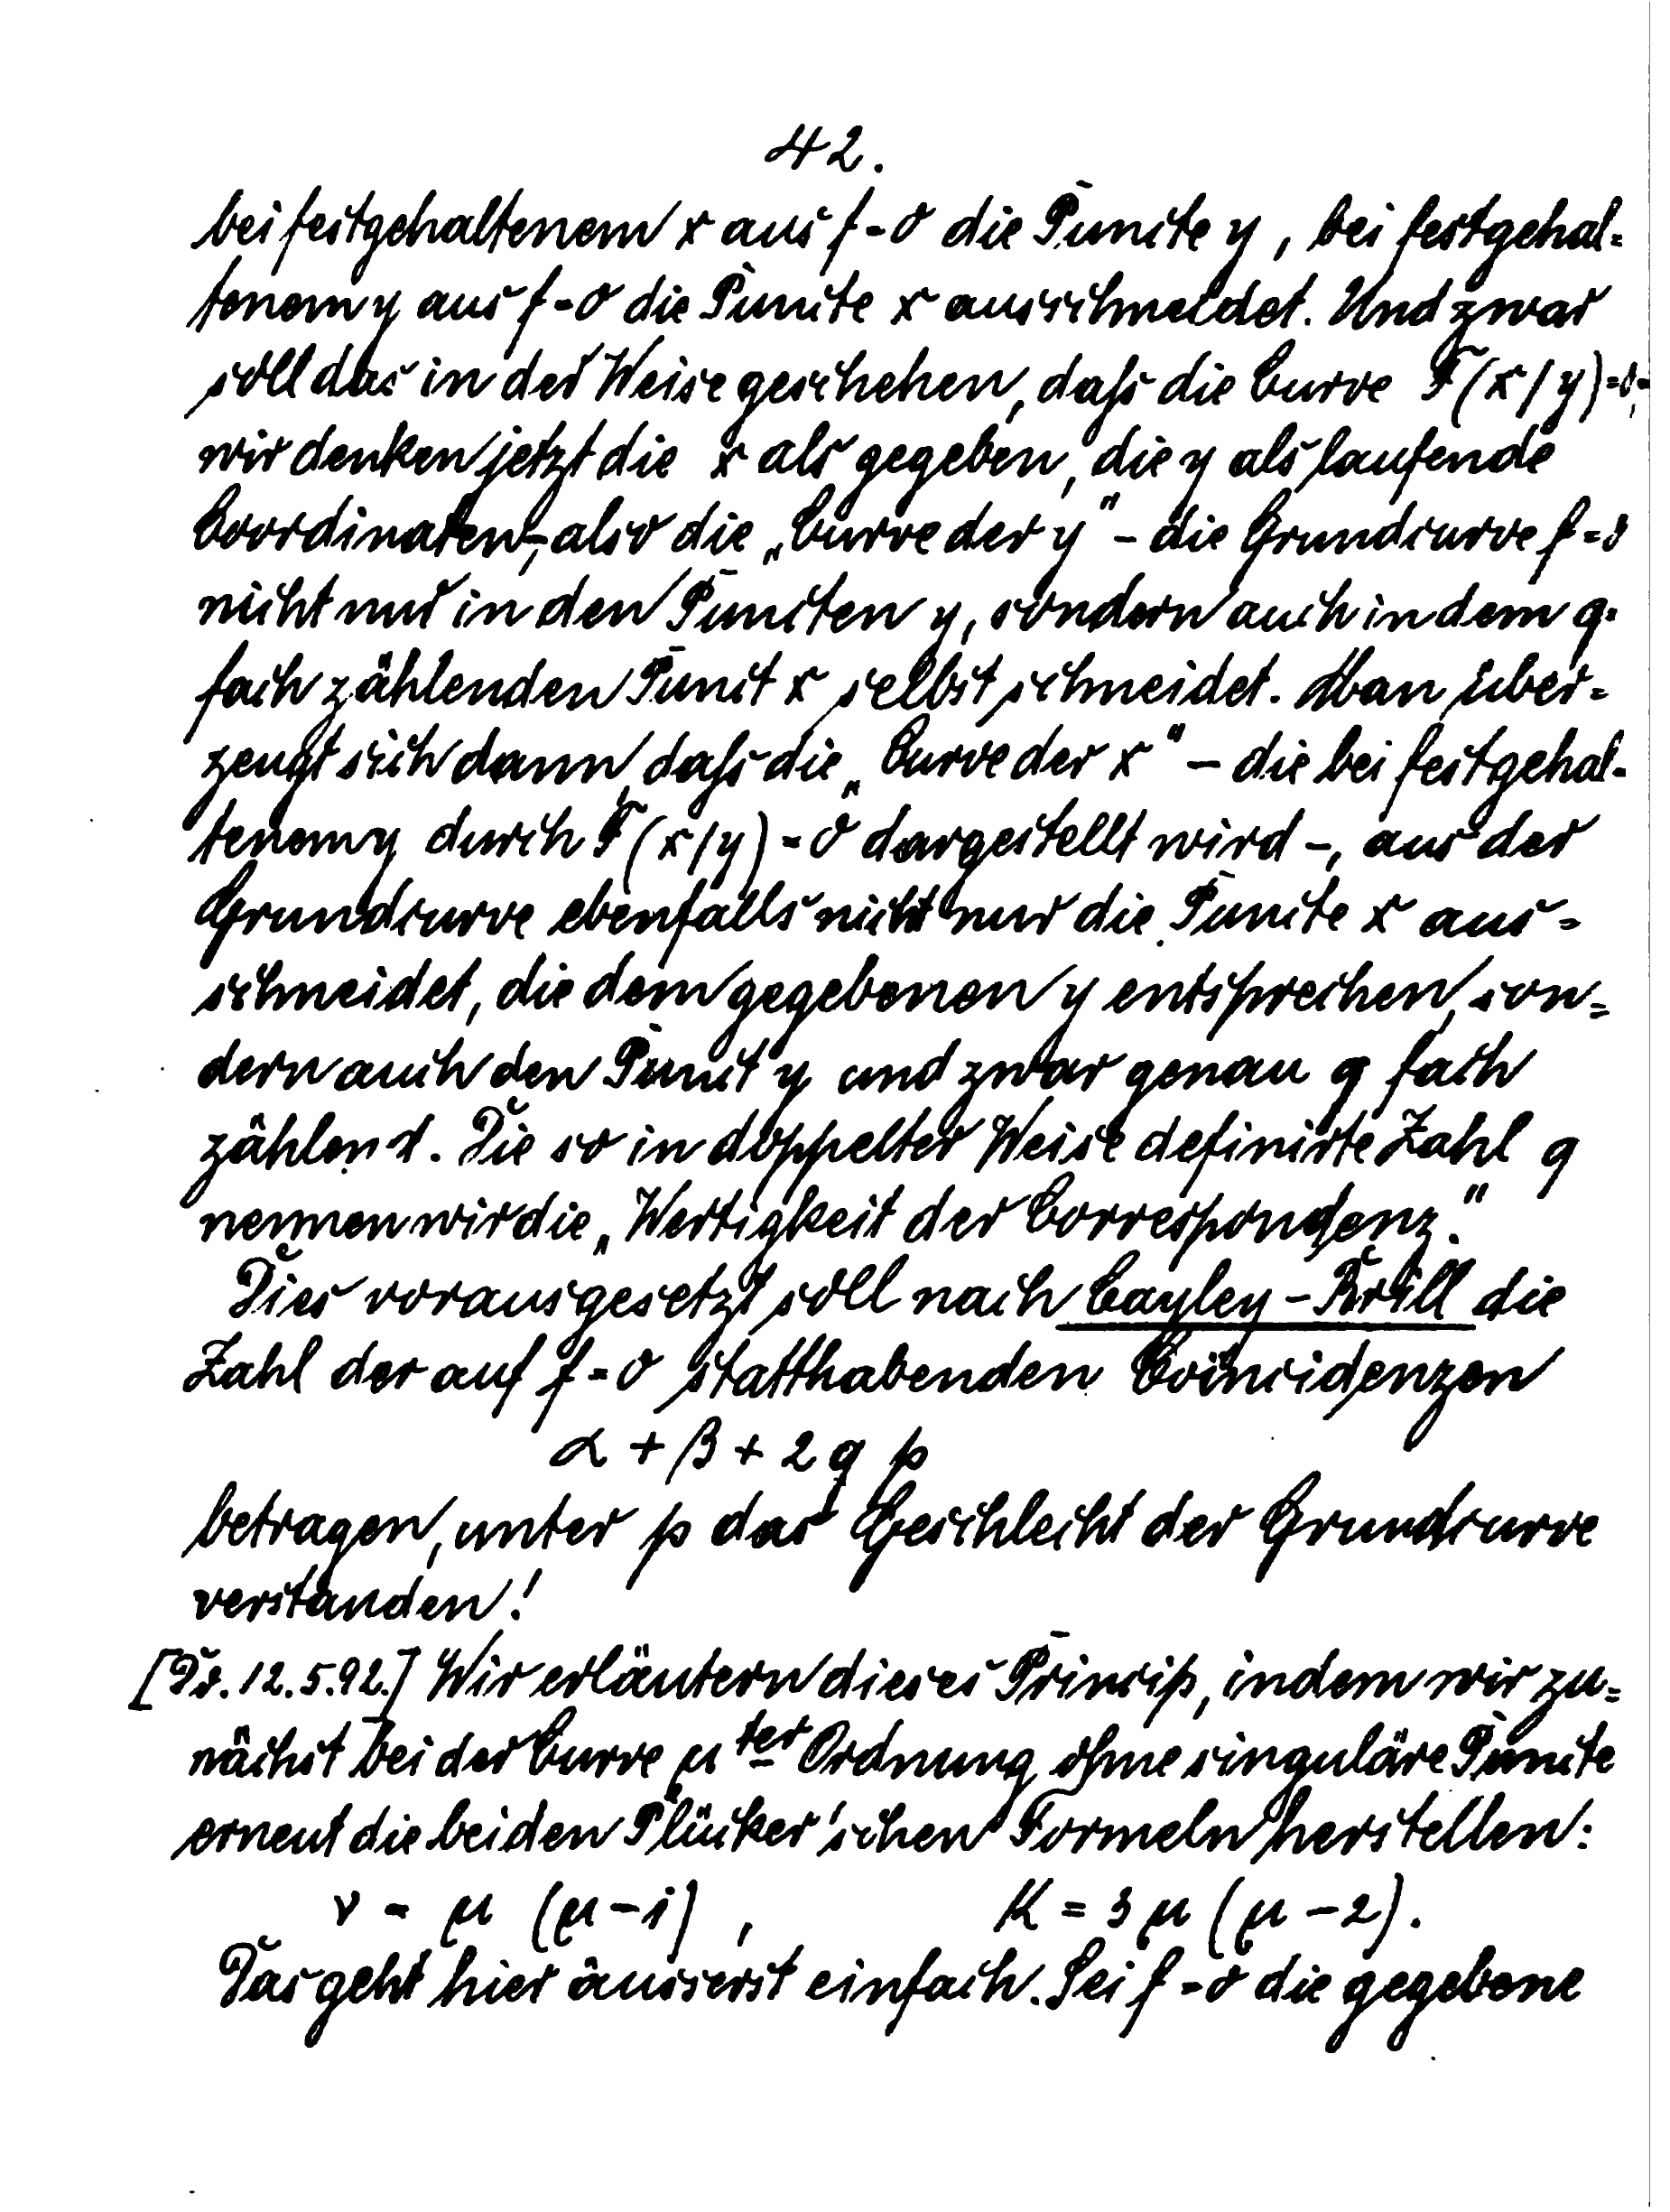 42.
bei festgehaltenem x aus f=0 die Puncte y, bei festgehal=
tenem y aus f=0 die Puncte x ausschneidet. Und zwar
soll das in der Weise geschehen, daß die Curve F(x/y)=0,-
wir denken jetzt die x als gegeben, die y als laufende
Coordinaten-, also die „Curve der y" - die Grundcurve f=0
nicht nur in den Puncten y, sondern auch in dem q-
fach zählenden Punct x selbst schneidet. Man über=
zeugt sich dann, daß die „Curve der x" - die bei festgehal-
tenem y durch F(x/y)=0 dargestellt wird -, aus der
Grundcurve ebenfalls nicht nur die Puncte x aus=
schneidet, die dem gegebenen y entsprechen, son=
dern auch den Punct y und zwar genau q fach
zählend. Die so in doppelter Weise definirte Zahl q
nennen wir die „Wertigkeit der Correspondenz."
Dies vorausgesetzt soll nach Cayley-Brill die
Zahl der auf f=0 statthabenden Coincidenzen
α + β + 2 q p
betragen, unter p das Geschlecht der Grundcurve
verstanden!
[Do. 12.5.92.] Wir erläutern dieses Princip, indem wir zu=
nächst bei der Curve μter Ordnung ohne singuläre Puncte
erneut die beiden Plücker'schen Formeln herstellen:
ν = μ (μ-1), K = 3μ(μ-2).
Das geht hier äusserst einfach. Sei f=0 die gegebene